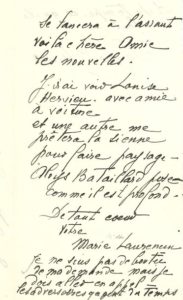 se lancera à l'assaut
voilà chère Amie
les nouvelles.
J'irai voir Louise
Hervieu. avec amie
à voiture
et une autre me
prêtera la sienne
pour faire paysage -
Aloys Bataillard
comme il est profond -
De tout cœur
Votre
Marie Laurencin
je ne suis pas de
je me demande mais je
dois aller en appel
les adresses gagnent du temps